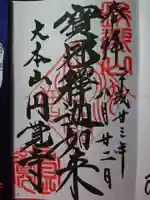 奉拝
平成廿三年
月廿二日
寶冠釋迦如来
大本山円覚寺